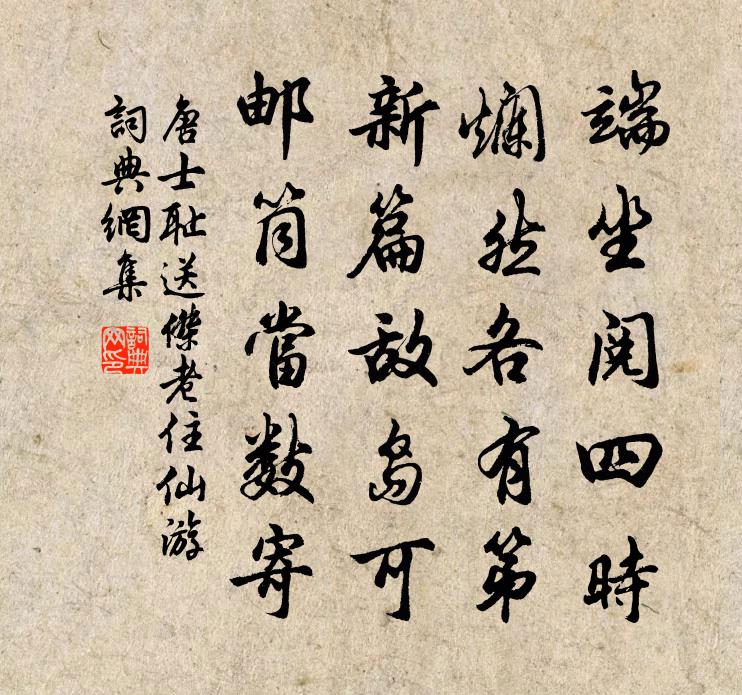 端坐阅四時
爛然各有第
新篇敌島可
邮筒當數寄
唐士耻送傑老住仙游
詞典網集
詞典
网印